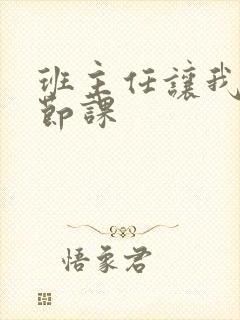 班主任讓我
節課
悟象君